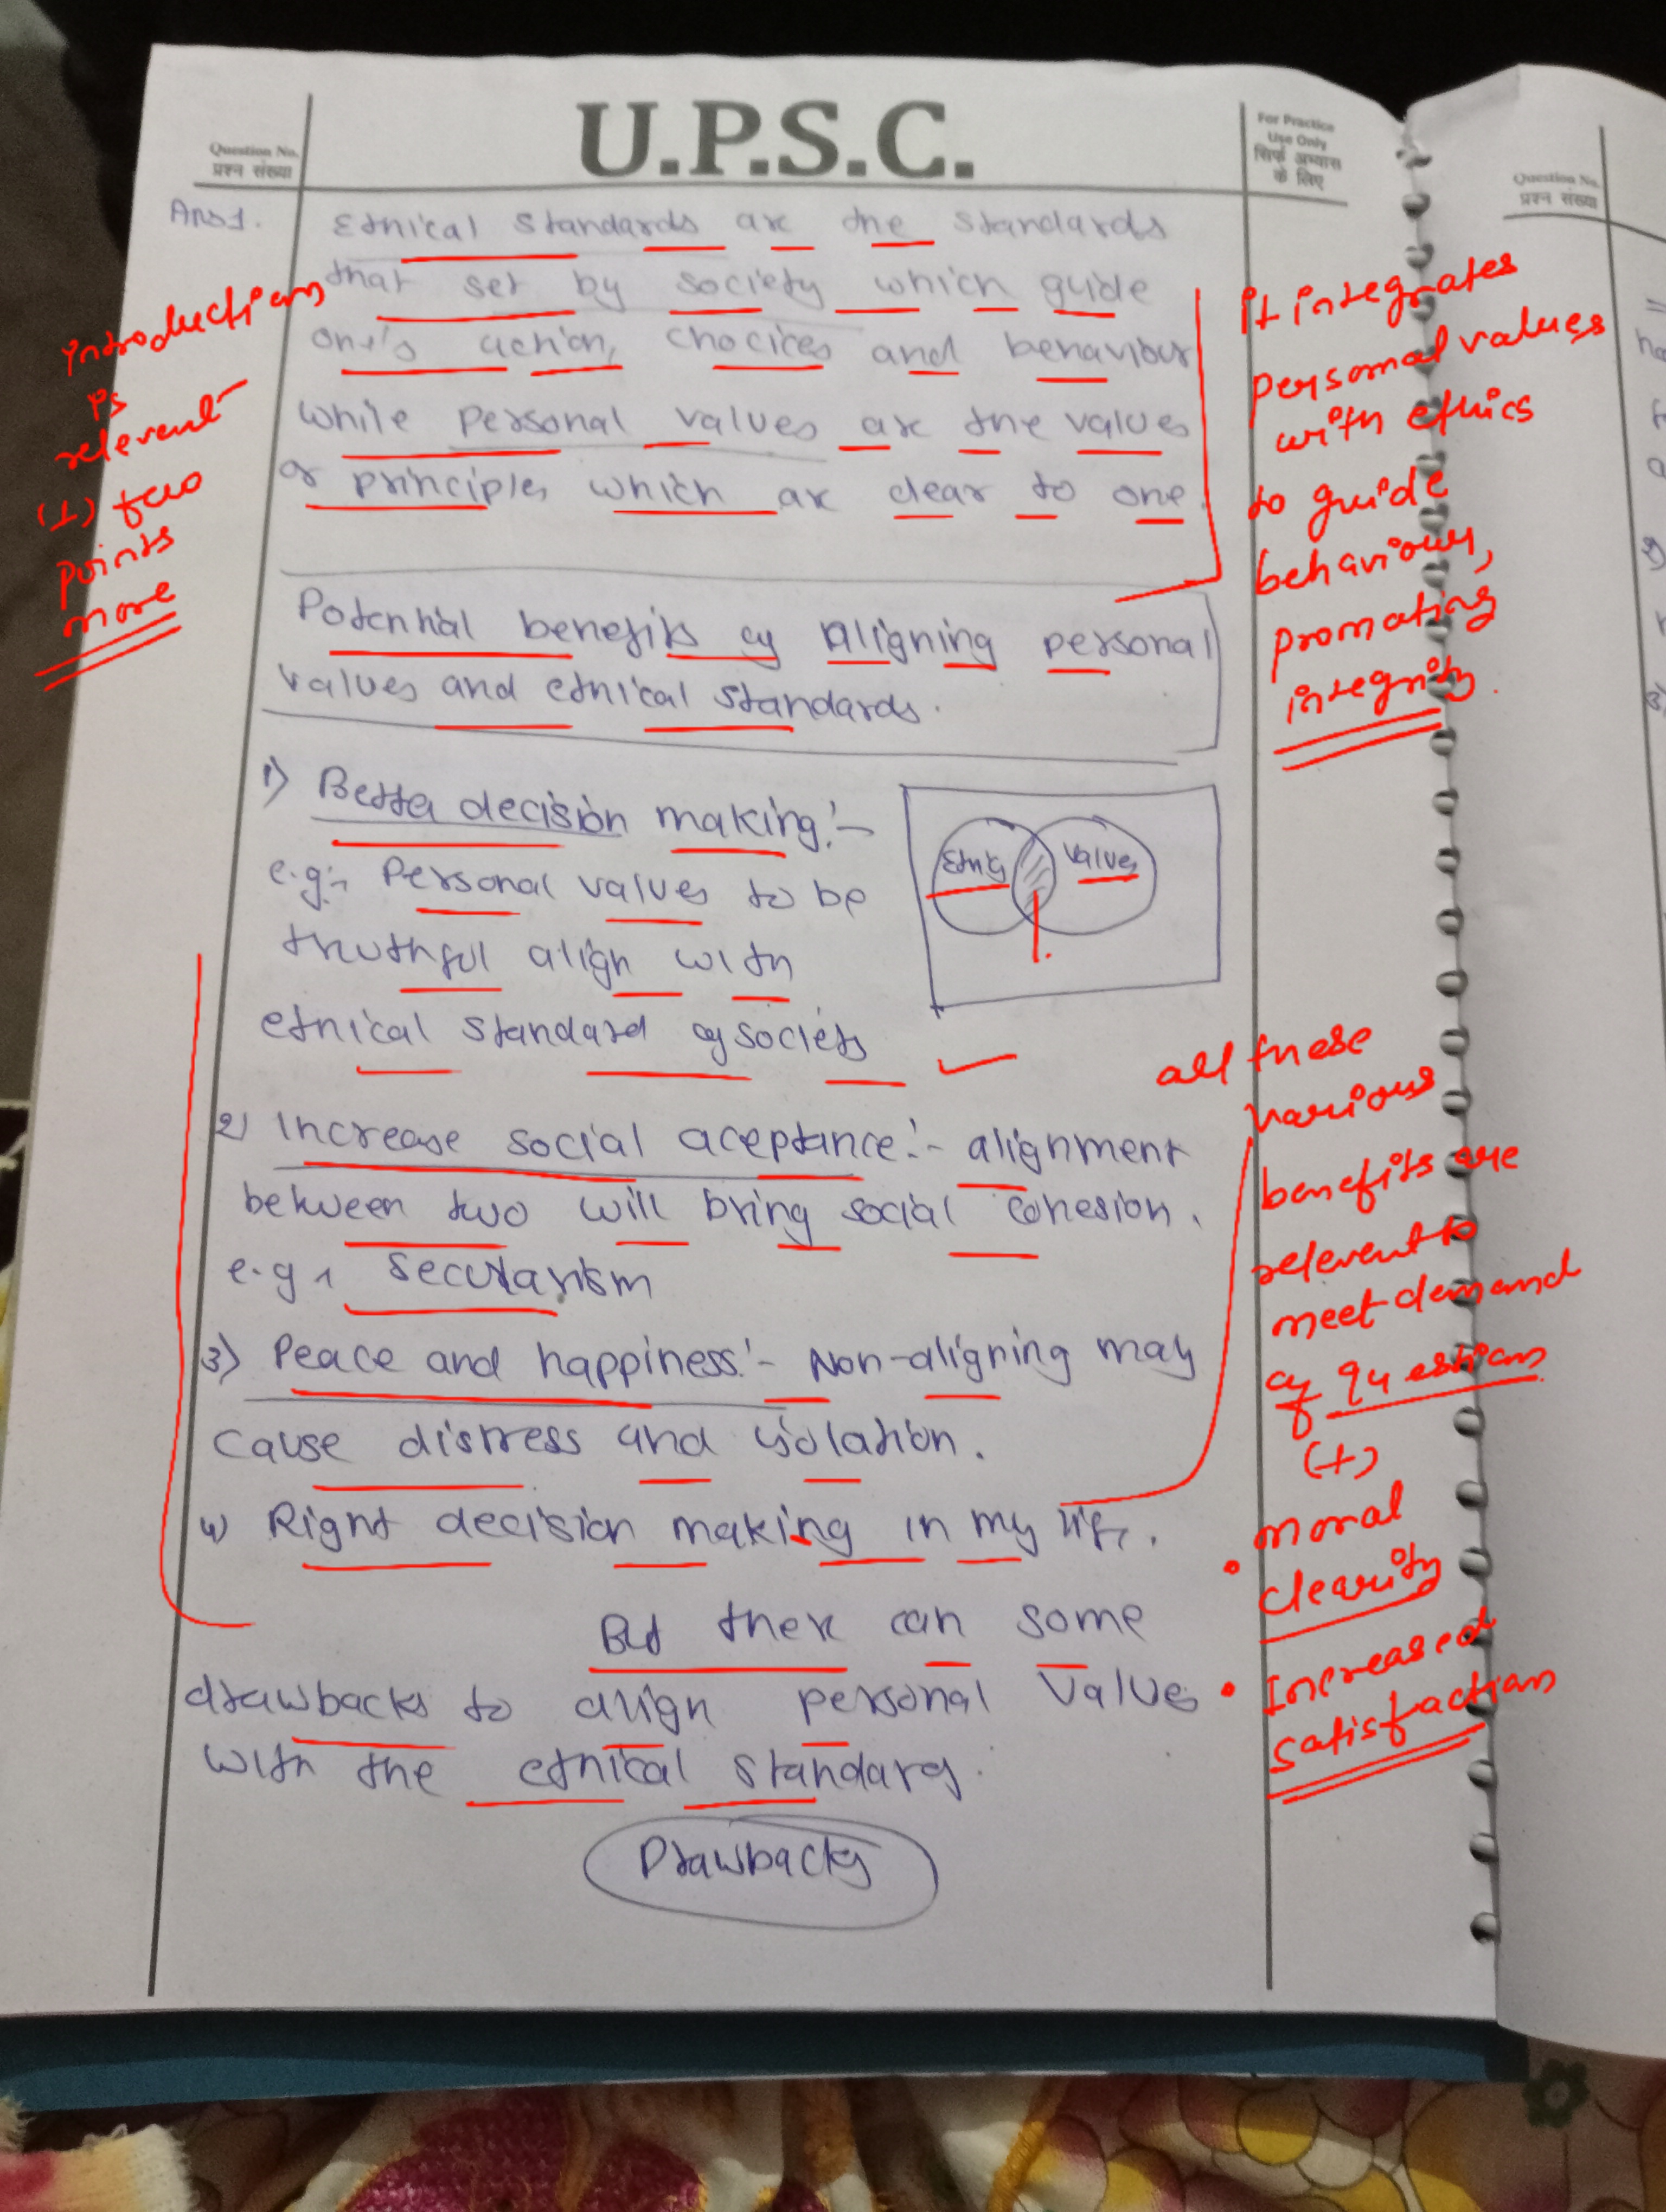 U.P.S.C.
Question No.
प्रश्न संख्या
For Practice
Use Only
सिर्फ अभ्यास
के लिए
Question No.
प्रश्न संख्या
Ans1.
Ethical standards are the standards
that set by society which guide
one's action, chocices and behaviour
while personal values are the values
or principles which are clear to one.
introduction
is
relevent
(+) two
points
more
it integrates
personal values
with ethics
to guide
behaviour,
promoting
integrity.
Potential benefits of aligning personal
values and ethical standards.
1) Better decision making:-
e.g:- Personal values to be
truthful align with
ethical standard of society
Ethics
Values
2) Increase social aceptance:- alignment
between two will bring social cohesion.
e.g. secularism
3) Peace and happiness:- Non-aligning may
cause distress and isolation.
4) Right decision making in my life.
all these
various
benefits are
relevent to
meet demand
of question
(+)
• moral
clearity
• Increased
satisfaction
But there can some
drawbacks to align personal values
with the ethical standards.
Drawbacks